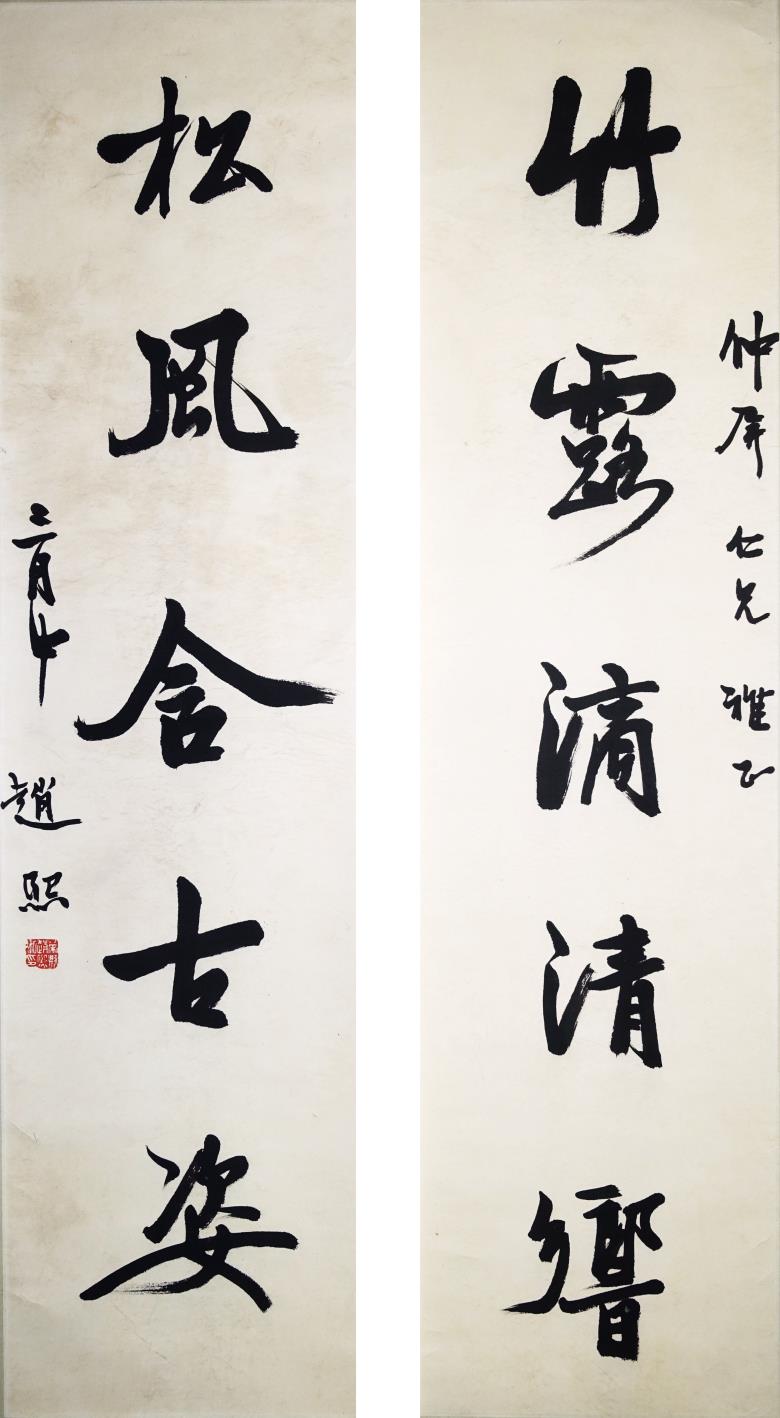 仲屏仁兄雅正
竹露滴清響
松風含古姿
二月中
趙熙